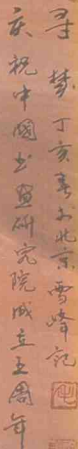 寻梦丁亥春于北京雪峰记
庆祝中国书画研究院成立五周年